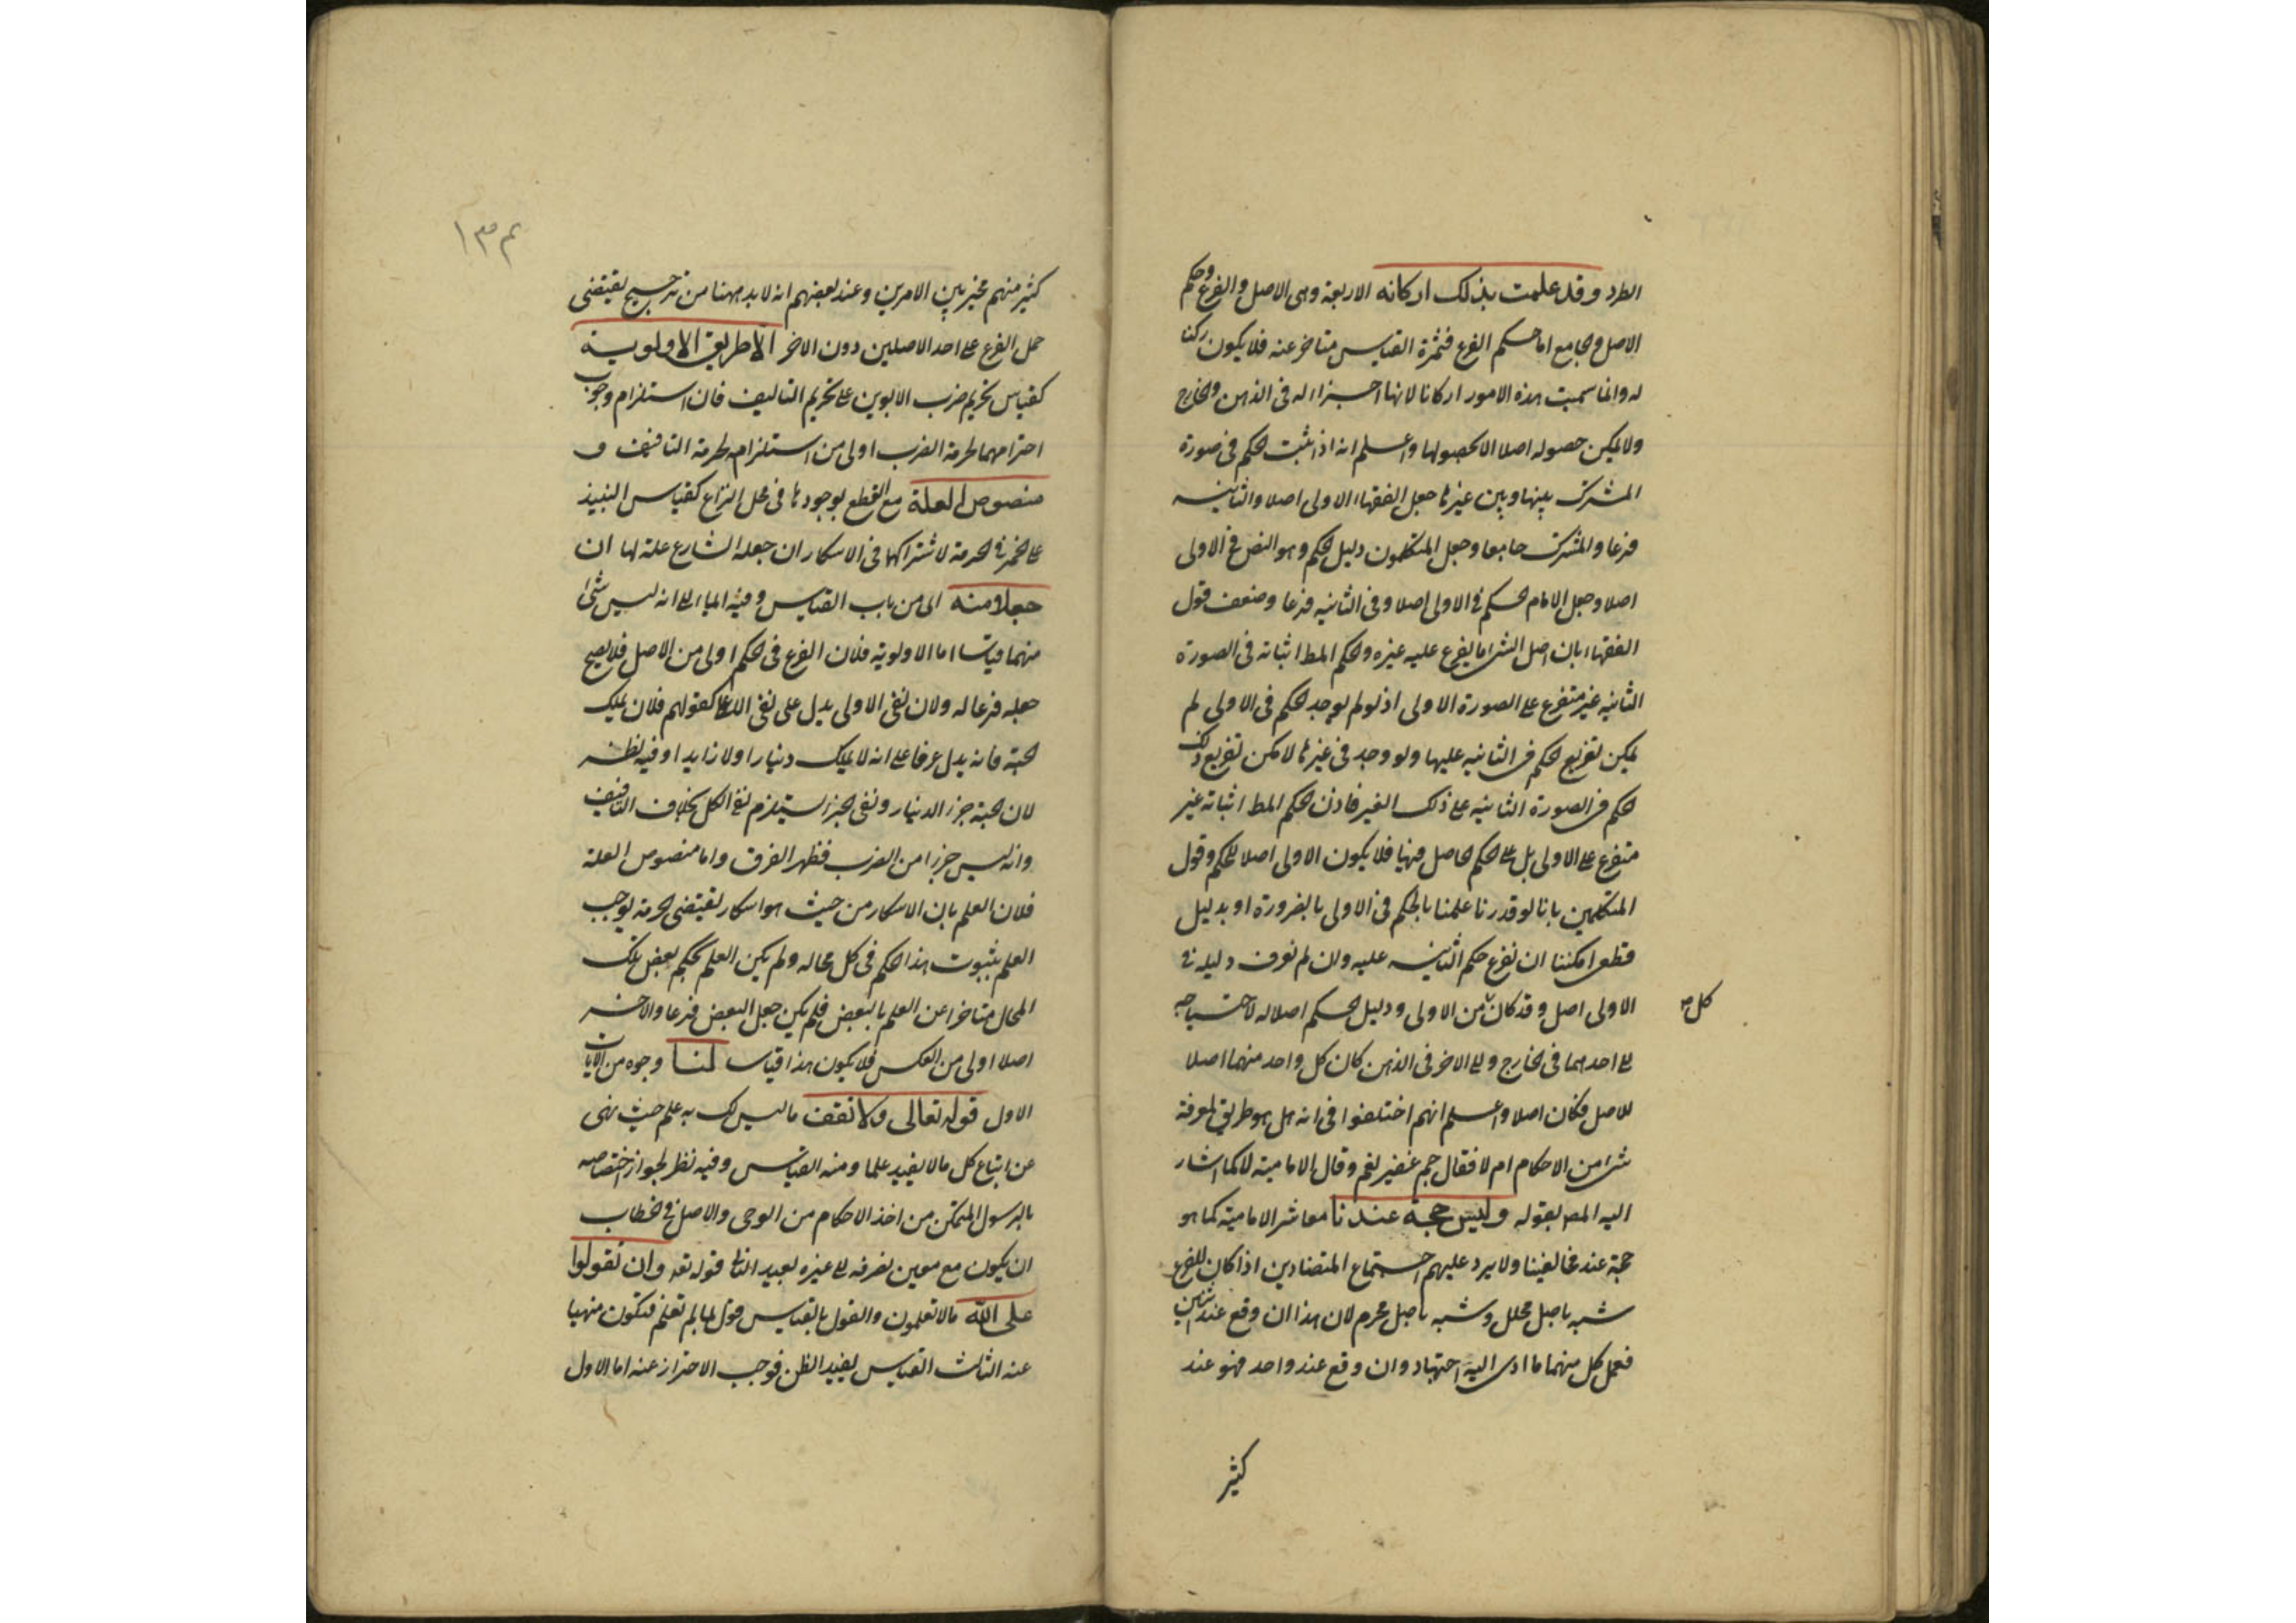 الطرد وقد علمت بذلك اركانه الاربعة وهى الاصل والفرع وحكم
الاصل والجامع اما حكم الفرع فثمرة القياس متاخر عنه فلا يكون ركنا
له وانما سميت هذه الامور اركانا لانها اجزاء له فى الذهن والخارج
ولا يمكن حصوله اصلا الا بحصولها واعلم انه اذا ثبت الحكم فى صورة
المشترك بينها وبين غيرها جعل الفقهاء الاولى اصلا والثانية
فرعا والمشترك جامعا وجعل المتكلمون دليل الحكم وهو النص فى الاولى
اصلا وجعل الامام الحكم فى الاولى اصلا وفى الثانية فرعا وضعف قول
الفقهاء بان اصل الشئ ما يفرع عليه غيره والحكم المط اثباته فى الصورة
الثانية غير متفرع على الصورة الاولى اذ لو لم يوجد الحكم فى الاولى لم
يمكن تفريع الحكم فى الثانية عليها ولو وجد فى غيرها لامكن تفريع ذلك
الحكم فى الصورة الثانية على ذلك الغير فاذن الحكم المط اثباته غير
متفرع على الاولى بل على الحكم الحاصل فيها فلا يكون الاولى اصلا للحكم وقول
المتكلمين بانا لو قدرنا علمنا بالحكم فى الاولى بالضرورة او بدليل
قطعى امكننا ان نفرع حكم الثانية عليه وان لم نعرف دليله فى
الاولى اصل وقد كان من الاولى ودليل الحكم اصلا له لاحتياجه
كل
الى احدهما فى الخارج والى الاخر فى الذهن كان كل واحد منهما اصلا
للاصل فكان اصلا واعلم انهم اختلفوا فى انه هل هو طريق لمعرفة
شئ من الاحكام ام لا فقال جم غفير نعم وقال الامامية لا كما اشار
اليه المص بقوله وليس حجة عندنا معاشر الامامية كما هو
حجة عند مخالفينا ولا يرد عليهم اجتماع المتضادين اذا كان للفرع
شبه باصل محلل وشبه باصل محرم لان هذا ان وقع عند اثنين
فعمل كل منهما ما ادى اليه اجتهاده وان وقع عند واحد فهو عند
كثير
١٣٤
كثير منهم مخير بين الامرين وعند بعضهم انه لا بد ههنا من ترجيح يقتضى
حمل الفرع على احد الاصلين دون الاخر الا طريق الاولوية
كقياس تحريم ضرب الابوين على تحريم التافيف فان استلزام وجوب
احترامهما لحرمة الضرب اولى من استلزامه لحرمة التافيف و
منصوص العلة مع القطع بوجودها فى محل النزاع كقياس النبيذ
على الخمر فى الحرمة لاشتراكهما فى الاسكار ان جعله الشارع علة لها ان
جعلا منه اى من باب القياس وفيه ايماء الى انه ليس شئ
منهما قياسا اما الاولوية فلان الفرع فى الحكم اولى من الاصل فلا يصح
جعله فرعا له ولان نفى الاولى يدل على نفى الاعلى كقولهم فلان لا يملك
الحبة فانه يدل عرفا على انه لا يملك دينارا ولا زايدا وفيه نظر
لان الحبة جزء الدينار ونفى الجزء يستلزم نفى الكل بخلاف التافيف
وانه ليس جزءا من الضرب فظهر الفرق واما منصوص العلة
فلان العلم بان الاسكار من حيث هو اسكار يقتضى الحرمة يوجب
العلم بثبوت هذا الحكم فى كل محاله ولم يكن العلم بحكم بعض تلك
المحال متاخرا عن العلم بالبعض فلم يكن جعل البعض فرعا والاخر
اصلا اولى من العكس فلا يكون هذا قياسا لنا وجوه من الايات
الاول قوله تعالى ولا تقف ما ليس لك به علم حيث نهى
عن اتباع كل ما لا يفيد علما ومنه القياس وفيه نظر لجواز اختصاصه
بالرسول المتمكن من اخذ الاحكام من الوحى والاصل فى الخطاب
ان يكون مع معين فصرفه الى غيره بعيد الثانى قوله تعه وان تقولوا
على الله ما لا تعلمون والقول بالقياس قول بما لم تعلم فيكون منهيا
عنه الثالث القياس يفيد الظن فوجب الاحتراز عنه اما الاول